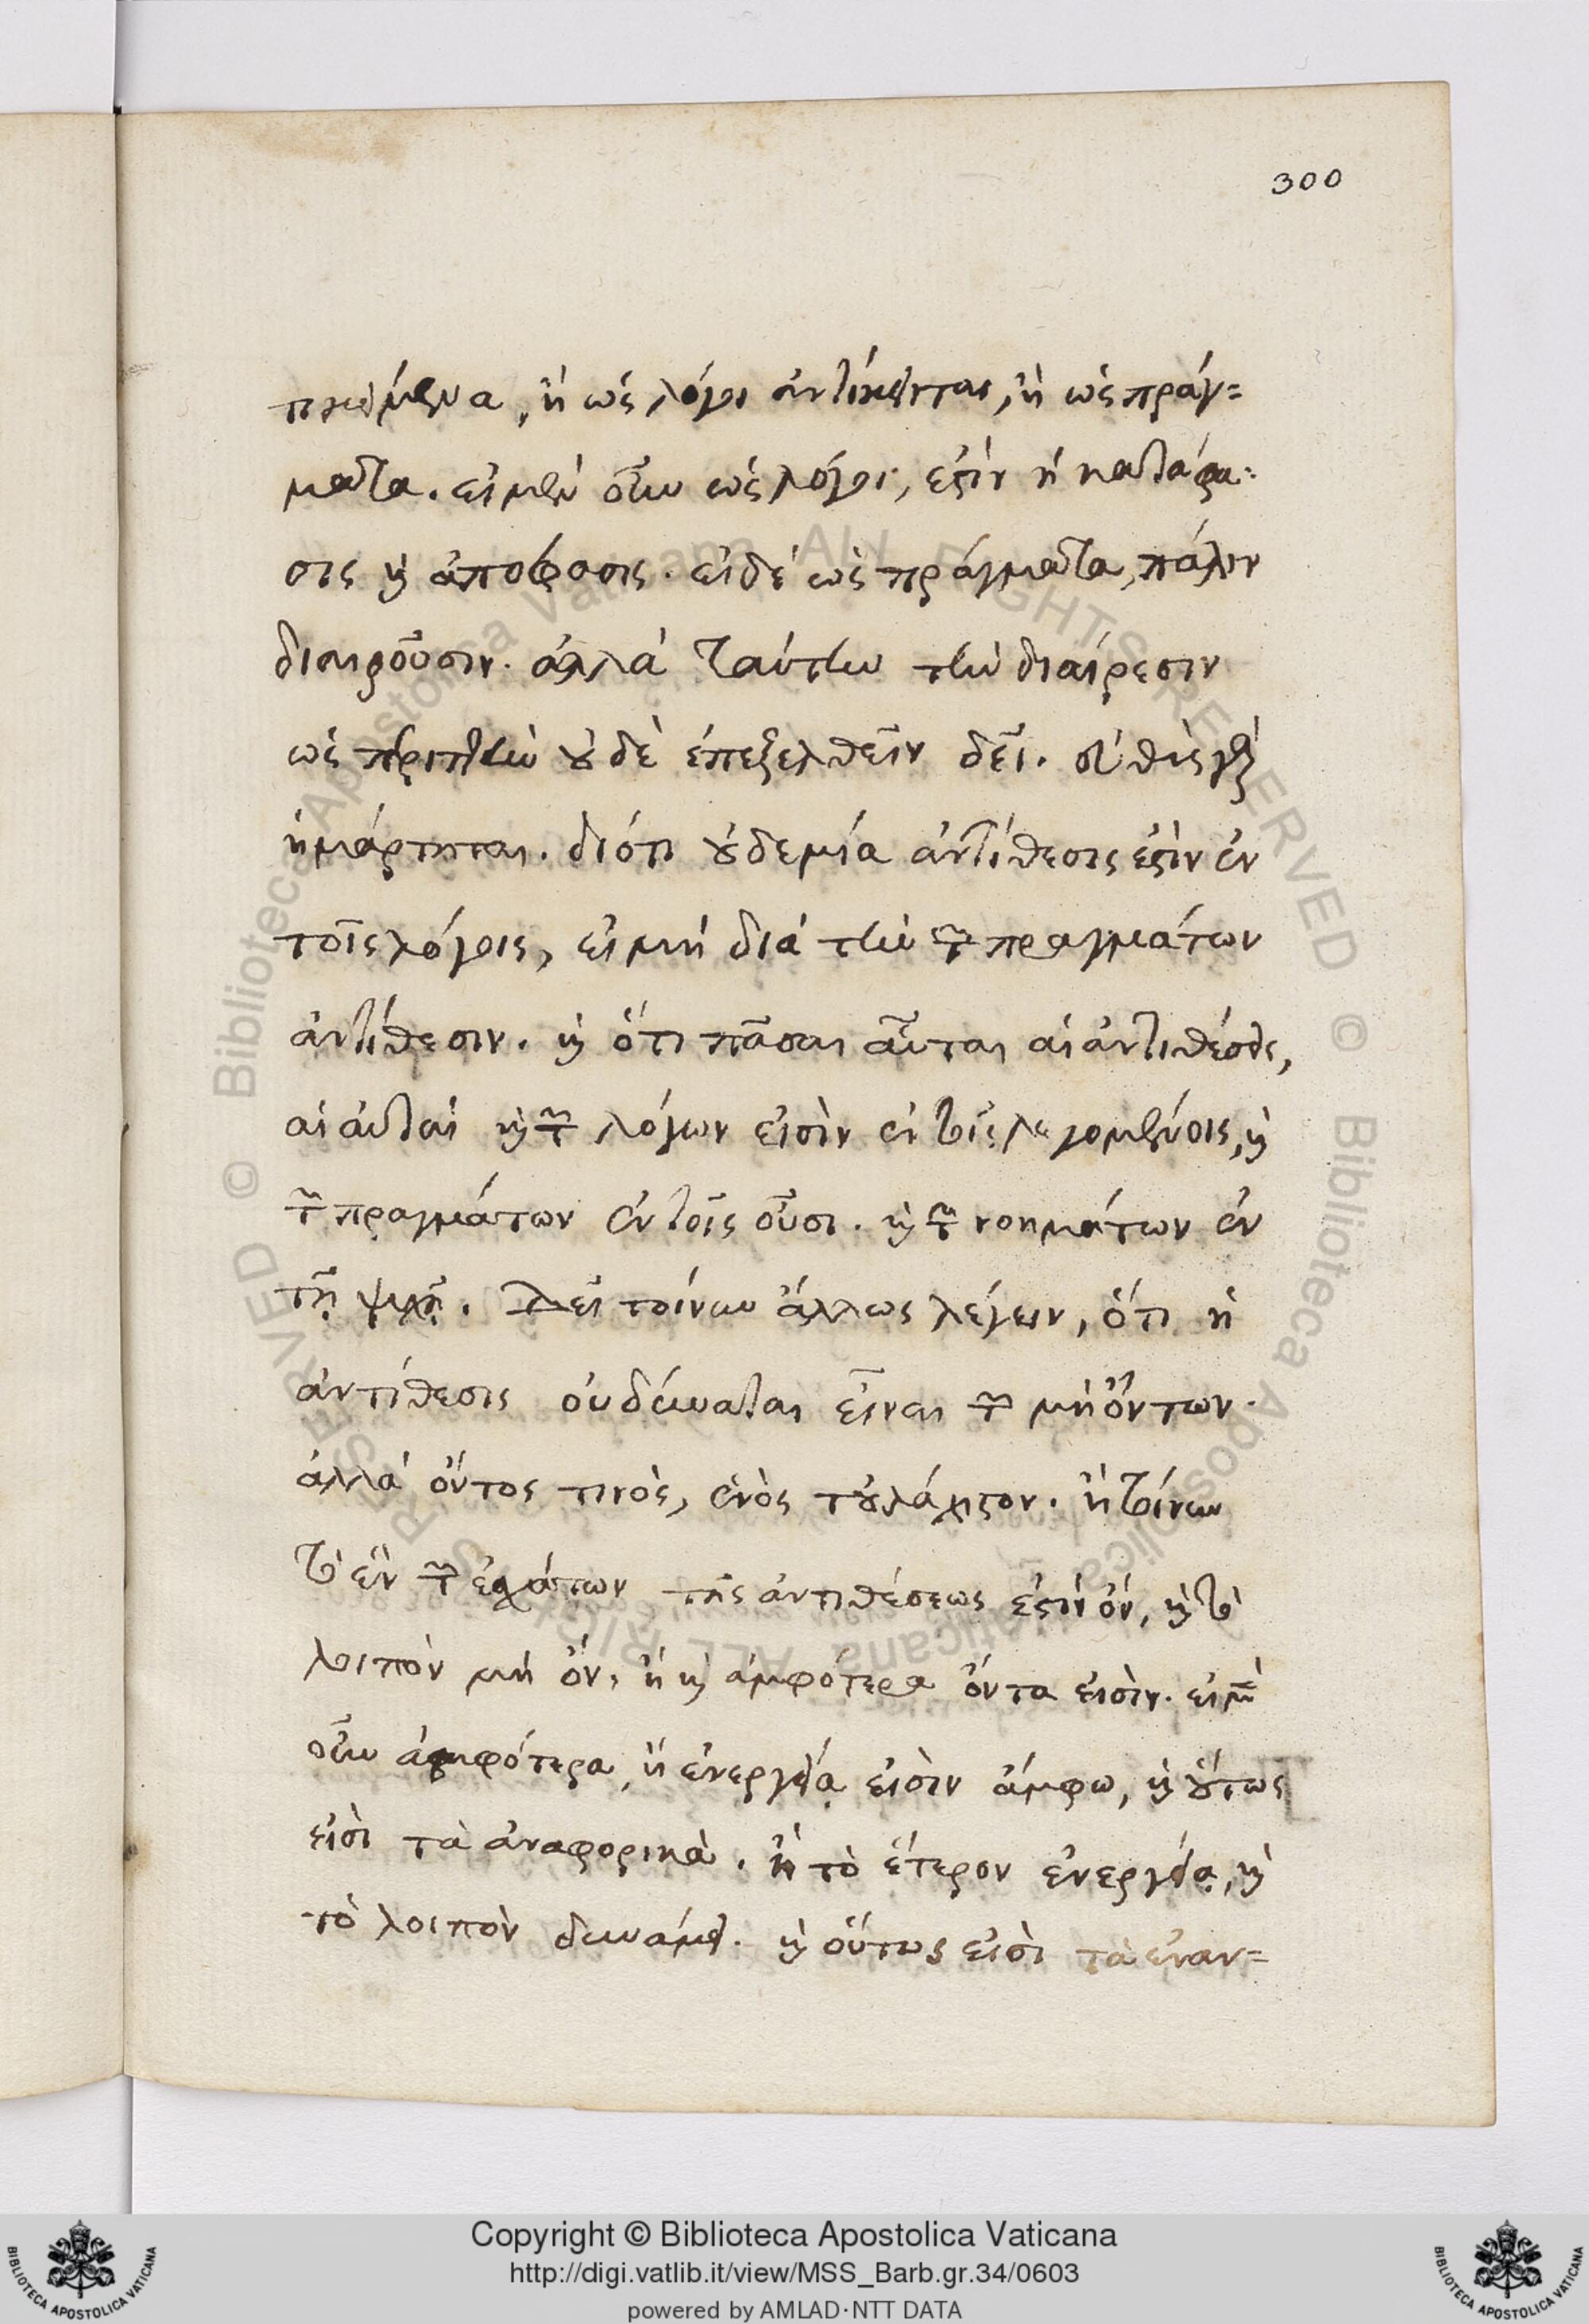 300
πικείμενα, ἢ ὡς λόγοι ἀντίκεινται, ἢ ὡς πράγ=
ματα. εἰ μὲν οὖν ὡς λόγοι, ἐςὶν ἡ κατάφα=
σις ὴ ἀπόφασις. εἰ δὲ ὡς πράγματα, πάλιν
διαιροῦσιν. ἀλλὰ ταύτην τὴν διαίρεσιν
ὡς περιττὴν ȣ̓δὲ ἐπεξελθεῖν δεῖ. εὐθὺς γὰρ
ἡμάρτηται. διότι ȣ̓δεμία ἀντίθεσίς ἐςιν ἐν
τοῖς λόγοις, εἰ μὴ διὰ τὴν τῶν πραγμάτων
ἀντίθεσιν. ϗ ὅτι πᾶσαι αὗται αἱ ἀντιθέσεις,
αἱ αὐταὶ ϗ τῶν λόγων εἰσὶν ἐν τοῖς λεγομένοις, ϗ
τῶν πραγμάτων ἐν τοῖς οὖσι. ϗ τῶν νοημάτων ἐν
τῇ ψυχῇ. Δεῖ τοίνυν ἄλλως λέγειν, ὅτι ἡ
ἀντίθεσις οὐ δύναται εἶναι τῶν μὴ ὄντων.
ἀλλὰ ὄντος τινὸς, ἑνὸς τȣ̓λάχιςον. ἢ τοίνυν
τὸ ἓν τῶν ἐσχάτων τῆς ἀντιθέσεως ἐςὶν ὂν, ϗ τὸ
λοιπὸν μὴ ὂν, ἢ ϗ ἀμφότερα ὄντα εἰσίν. εἰ μὲν
οὖν ἀμφότερα, ἢ ἐνεργείᾳ εἰσὶν ἄμφω, ϗ ȣ̔́τως
εἰσὶ τὰ ἀναφορικὰ. ἢ τὸ ἕτερον ἐνεργείᾳ, ϗ
τὸ λοιπὸν δυνάμει. ϗ οὕτως εἰσὶ τὰ ἐναν=
Copyright © Biblioteca Apostolica Vaticana
http://digi.vatlib.it/view/MSS_Barb.gr.34/0603
powered by AMLAD·NTT DATA